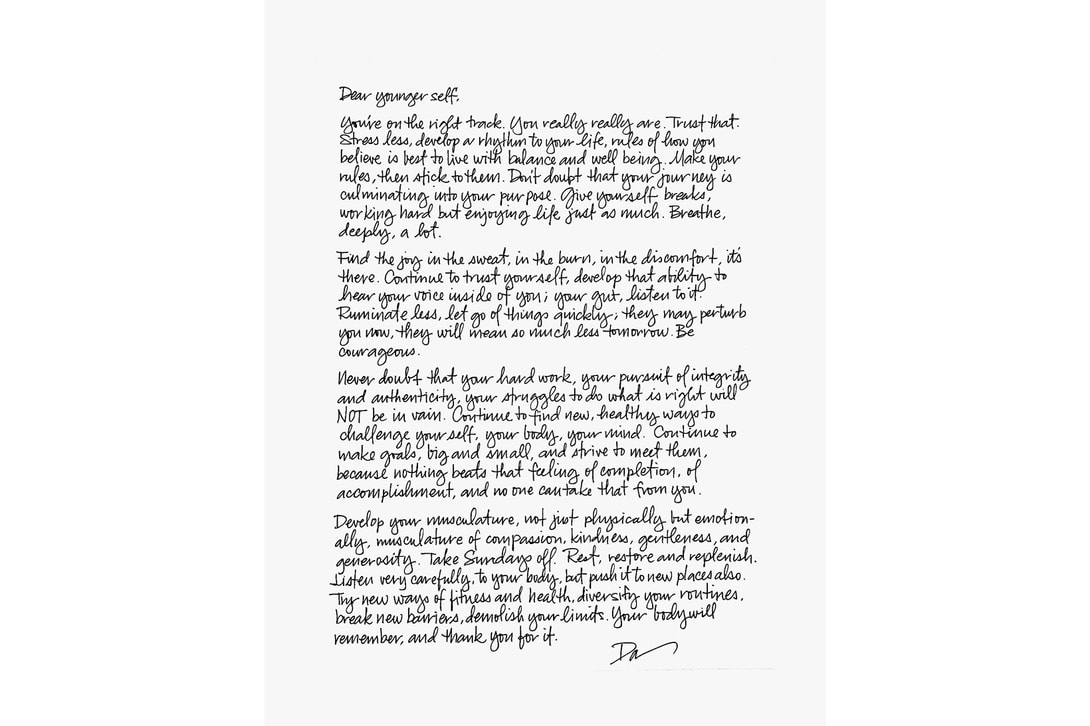 Dear younger self,
You're on the right track. You really really are. Trust that.
Stress less, develop a rhythm to your life, rules of how you
believe is best to live with balance and well being. Make your
rules, then stick to them. Don't doubt that your journey is
culminating into your purpose. Give yourself breaks,
working hard but enjoying life just as much. Breathe,
deeply, a lot.
Find the joy in the sweat, in the burn, in the discomfort, it's
there. Continue to trust yourself, develop that ability to
hear your voice inside of you; your gut, listen to it.
Ruminate less, let go of things quickly; they may perturb
you now, they will mean so much less tomorrow. Be
courageous.
Never doubt that your hard work, your pursuit of integrity
and authenticity, your struggles to do what is right will
NOT be in vain. Continue to find new, healthy ways to
challenge yourself, your body, your mind. Continue to
make goals, big and small, and strive to meet them,
because nothing beats that feeling of completion, of
accomplishment, and no one can take that from you.
Develop your musculature, not just physically but emotion-
ally, musculature of compassion, kindness, gentleness, and
generosity. Take Sundays off. Rest, restore and replenish.
Listen very carefully, to your body, but push it to new places also.
Try new ways of fitness and health, diversity your routines,
break new barriers, demolish your limits. Your body will
remember, and thank you for it.